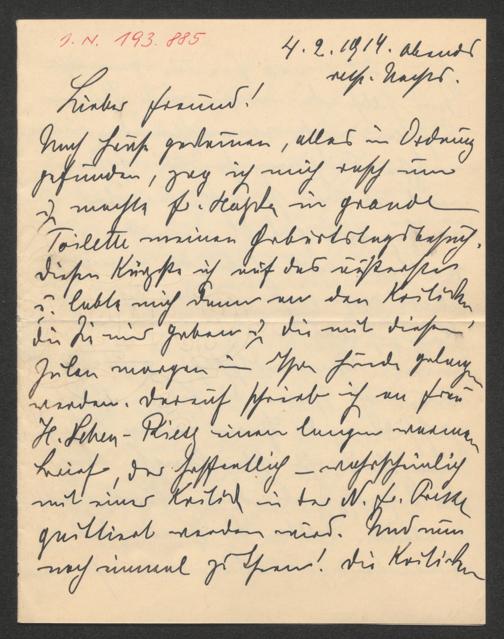 I. N. 193.885
4. 2. 1914. abends
resp. Nachts.
Lieber Freund!
Nach Hause gekommen, alles in Ordnung
gefunden, zog ich mich rasch um
u. machte Fr. in grande
Toilette meinen Geburtstagsbesuch.
Diesen kürzte ich auf das äußerste
u. labte mich dann an den Kritiken,
die Sie mir gaben u. die mit diesen
Zeilen morgen in Ihre Hände gelangen
werden. Darauf schrieb ich an Frau
H. einen langen warmen
Brief, der hoffentlich – wahrscheinlich
mit einer Kritik in der N. fr. Presse
quittiert werden wird. Und nun
noch einmal zu Ihnen! Die Kritiken